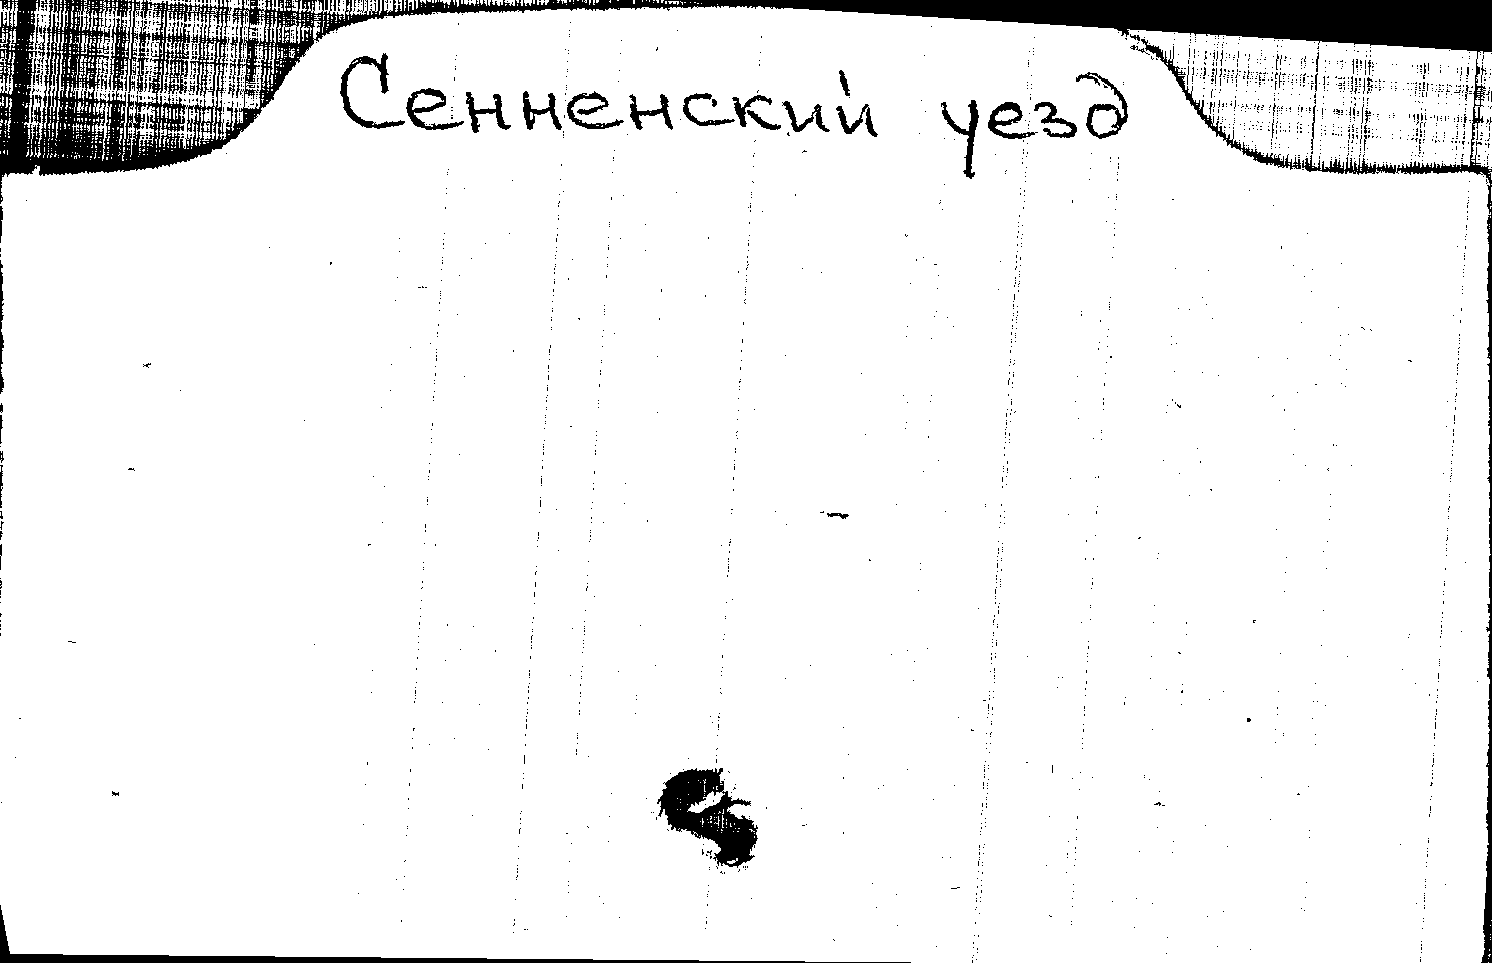 Сенненский уезд